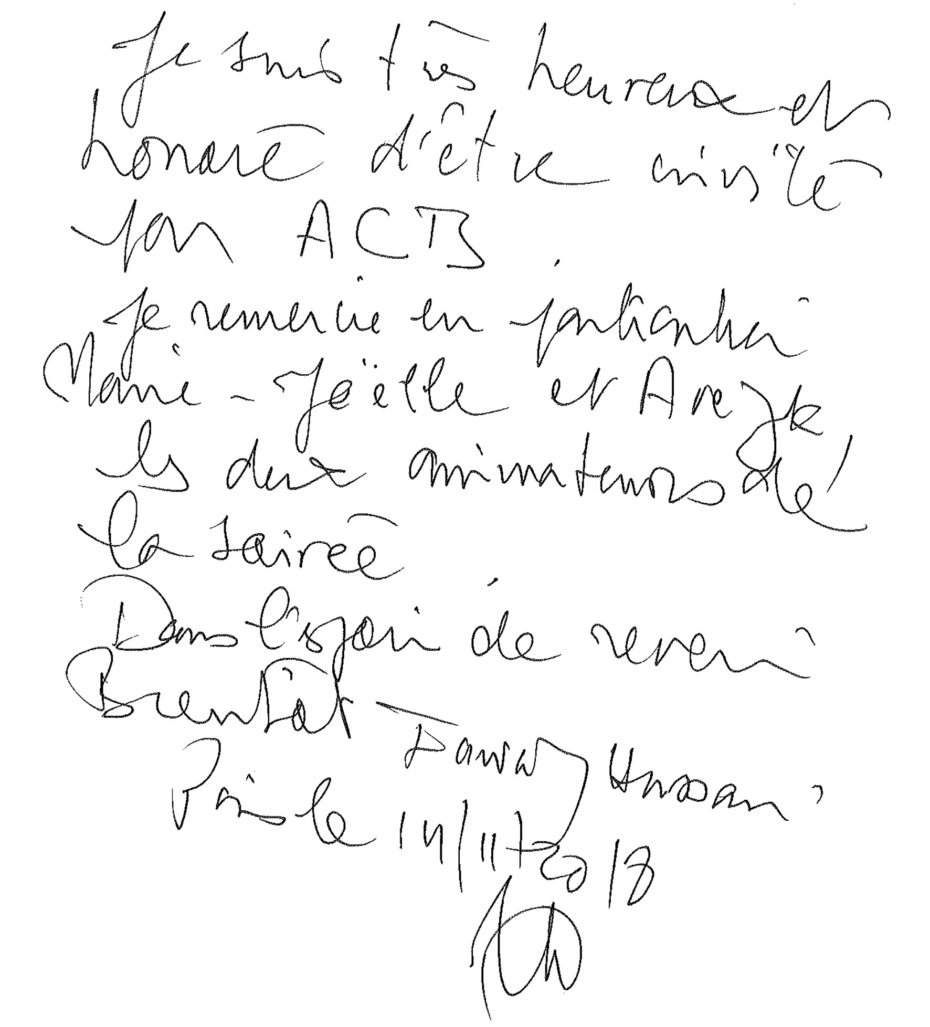 Je suis très heureux et
honoré d'être invité
par ACTB.
Je remercie en particulier
Marie-Joëlle et Arezki
les deux animateurs de
la soirée
Dans l'espoir de revenir
Bientôt
Hassani
Paris le 14/11/2018